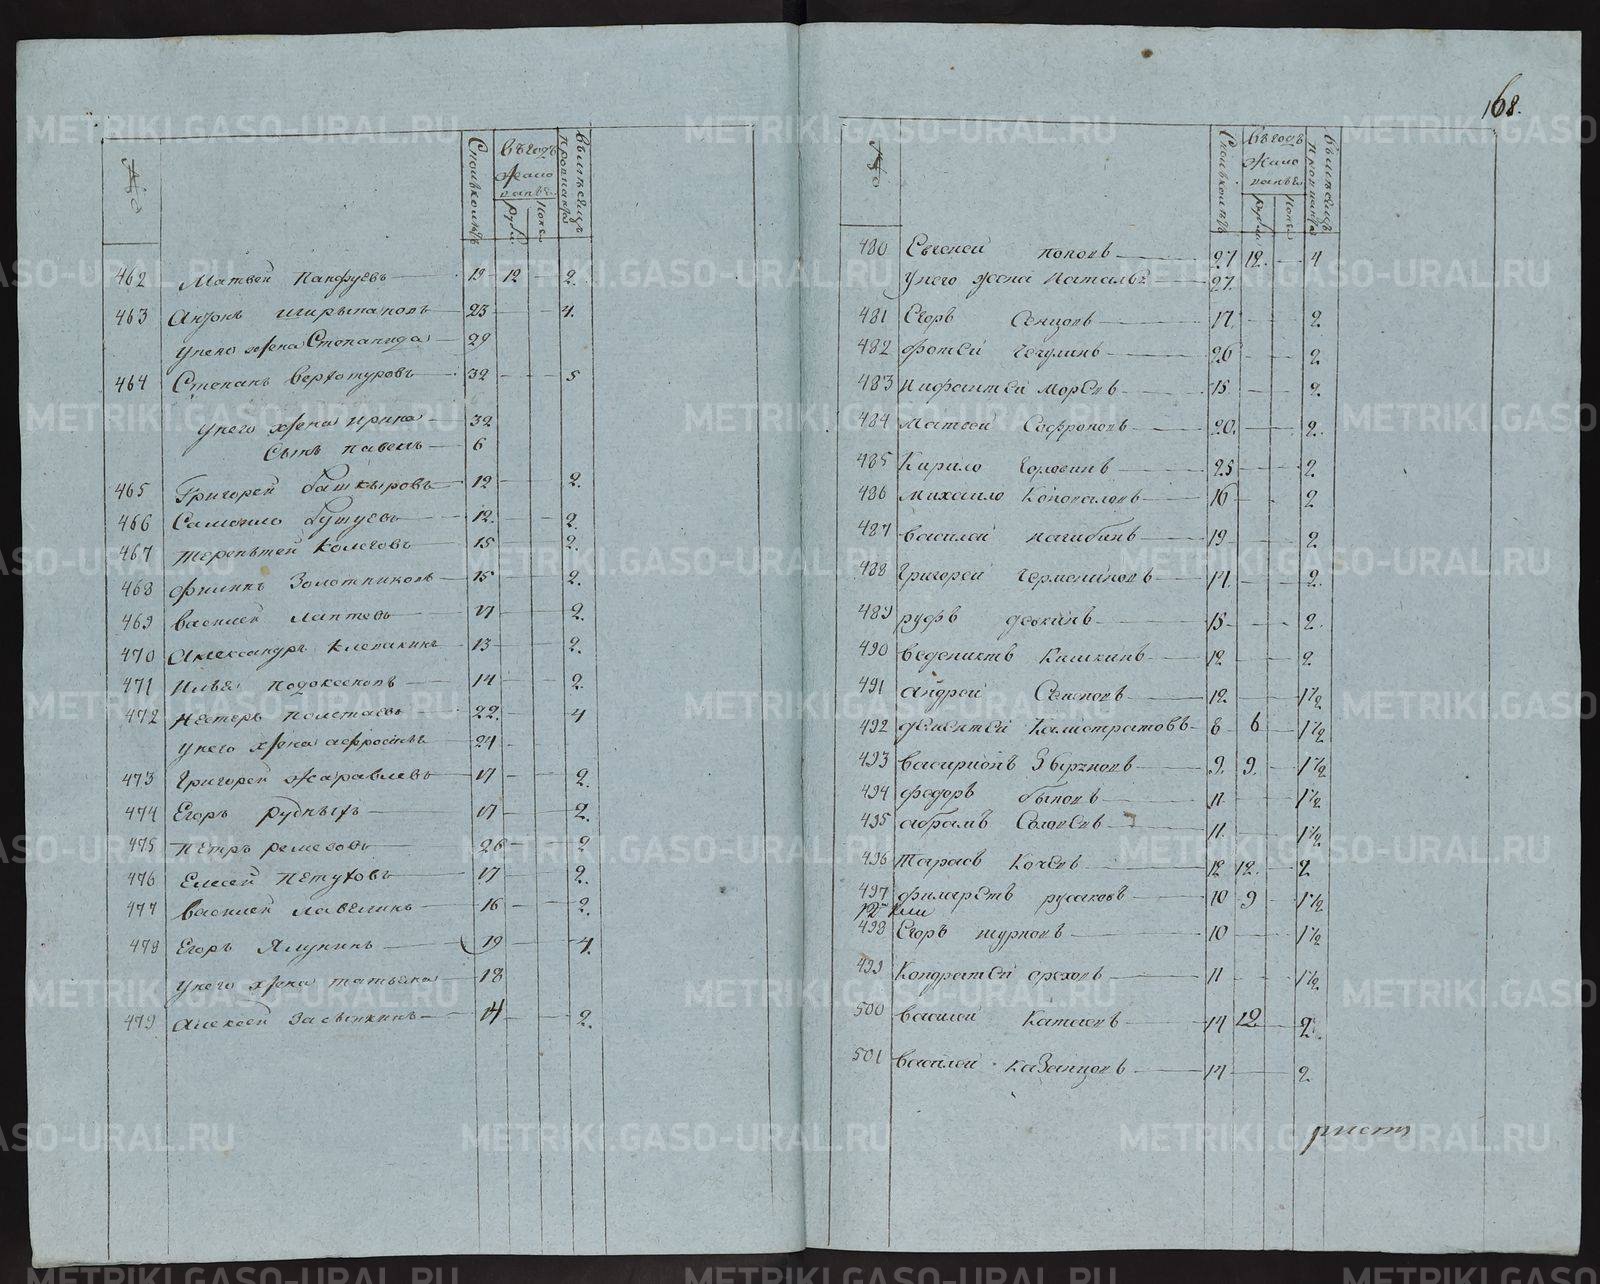 168.
№
Сколькомѣдъ
Въгодъ
Жало
ванья
Рубл.
Копе
Вымѣсяцъ
провианта
462 Матвей Панфуевъ 19 12 2.
463 Антонъ ширыкаловъ 23 4.
унего жена Степанида 29
464 Степанъ Верхотуровъ 32 5
унего жена ирина 32
Сынъ павелъ 6
465 Григорей башкыровъ 12 2.
466 Самойло бутуевъ 12. 2.
467 терентей Колеговъ 15 2.
468 филипъ Золотниковъ 15 2.
469 василей лаптевъ 17 2.
470 Александръ клепакинъ 13 2.
471 Илья подоксеновъ 14 2.
472 нестеръ полетаевъ 22. 4
унего жена афросинья 24
473 Григорей Жаравлевъ 17 2.
474 Егоръ Рудныхъ 17 2.
475 петръ ремезовъ 26 2
476 Елисей Петуховъ 17 2.
477 василей лавелинъ 16 2.
478 Егоръ Ялунинъ 19 4.
унего жена татьяна 18
479 Алексей Засыпкинъ 14 2.
№
Въгодъ
Жало
ванья
Рубл.
Копе
Вымѣсяцъ
провианта
480 Евгеней поповъ 27 12. 4
унего жена Наталья 27.
481 Егоръ Сенцовъ 17 2
482 фотей Чегулинъ 26 2
483 Нифантей Моревъ 15 2
484 Матвей Софроновъ 20. 2.
485 Кирило Голосинъ 25 2
486 михаило Коноваловъ 16 2
487 василей нагибинъ 19 2
488 Григорей Чермениновъ 14 2.
489 руфъ деокинъ 15 2.
490 веденихтъ Кишкинъ 12 2
491 андрей Семеновъ 12. 1½
492 дементей Калистратовъ 8 6 1½
493 васирионъ Зверховъ 9. 9. 1½
494 федоръ быковъ 11 1½
495 абрамъ Соловевъ 11. 1½
496 Тарасъ Кочевъ 12 12. 2
497 филаретъ русаковъ 10 9 1½
498 Егоръ шурковъ 10 1½
499 Кондратей ореховъ 11 1½
500 василей Катаевъ 14 12 2.
501 василей казанцовъ 14 2
METRIKI.GASO-URAL.RU